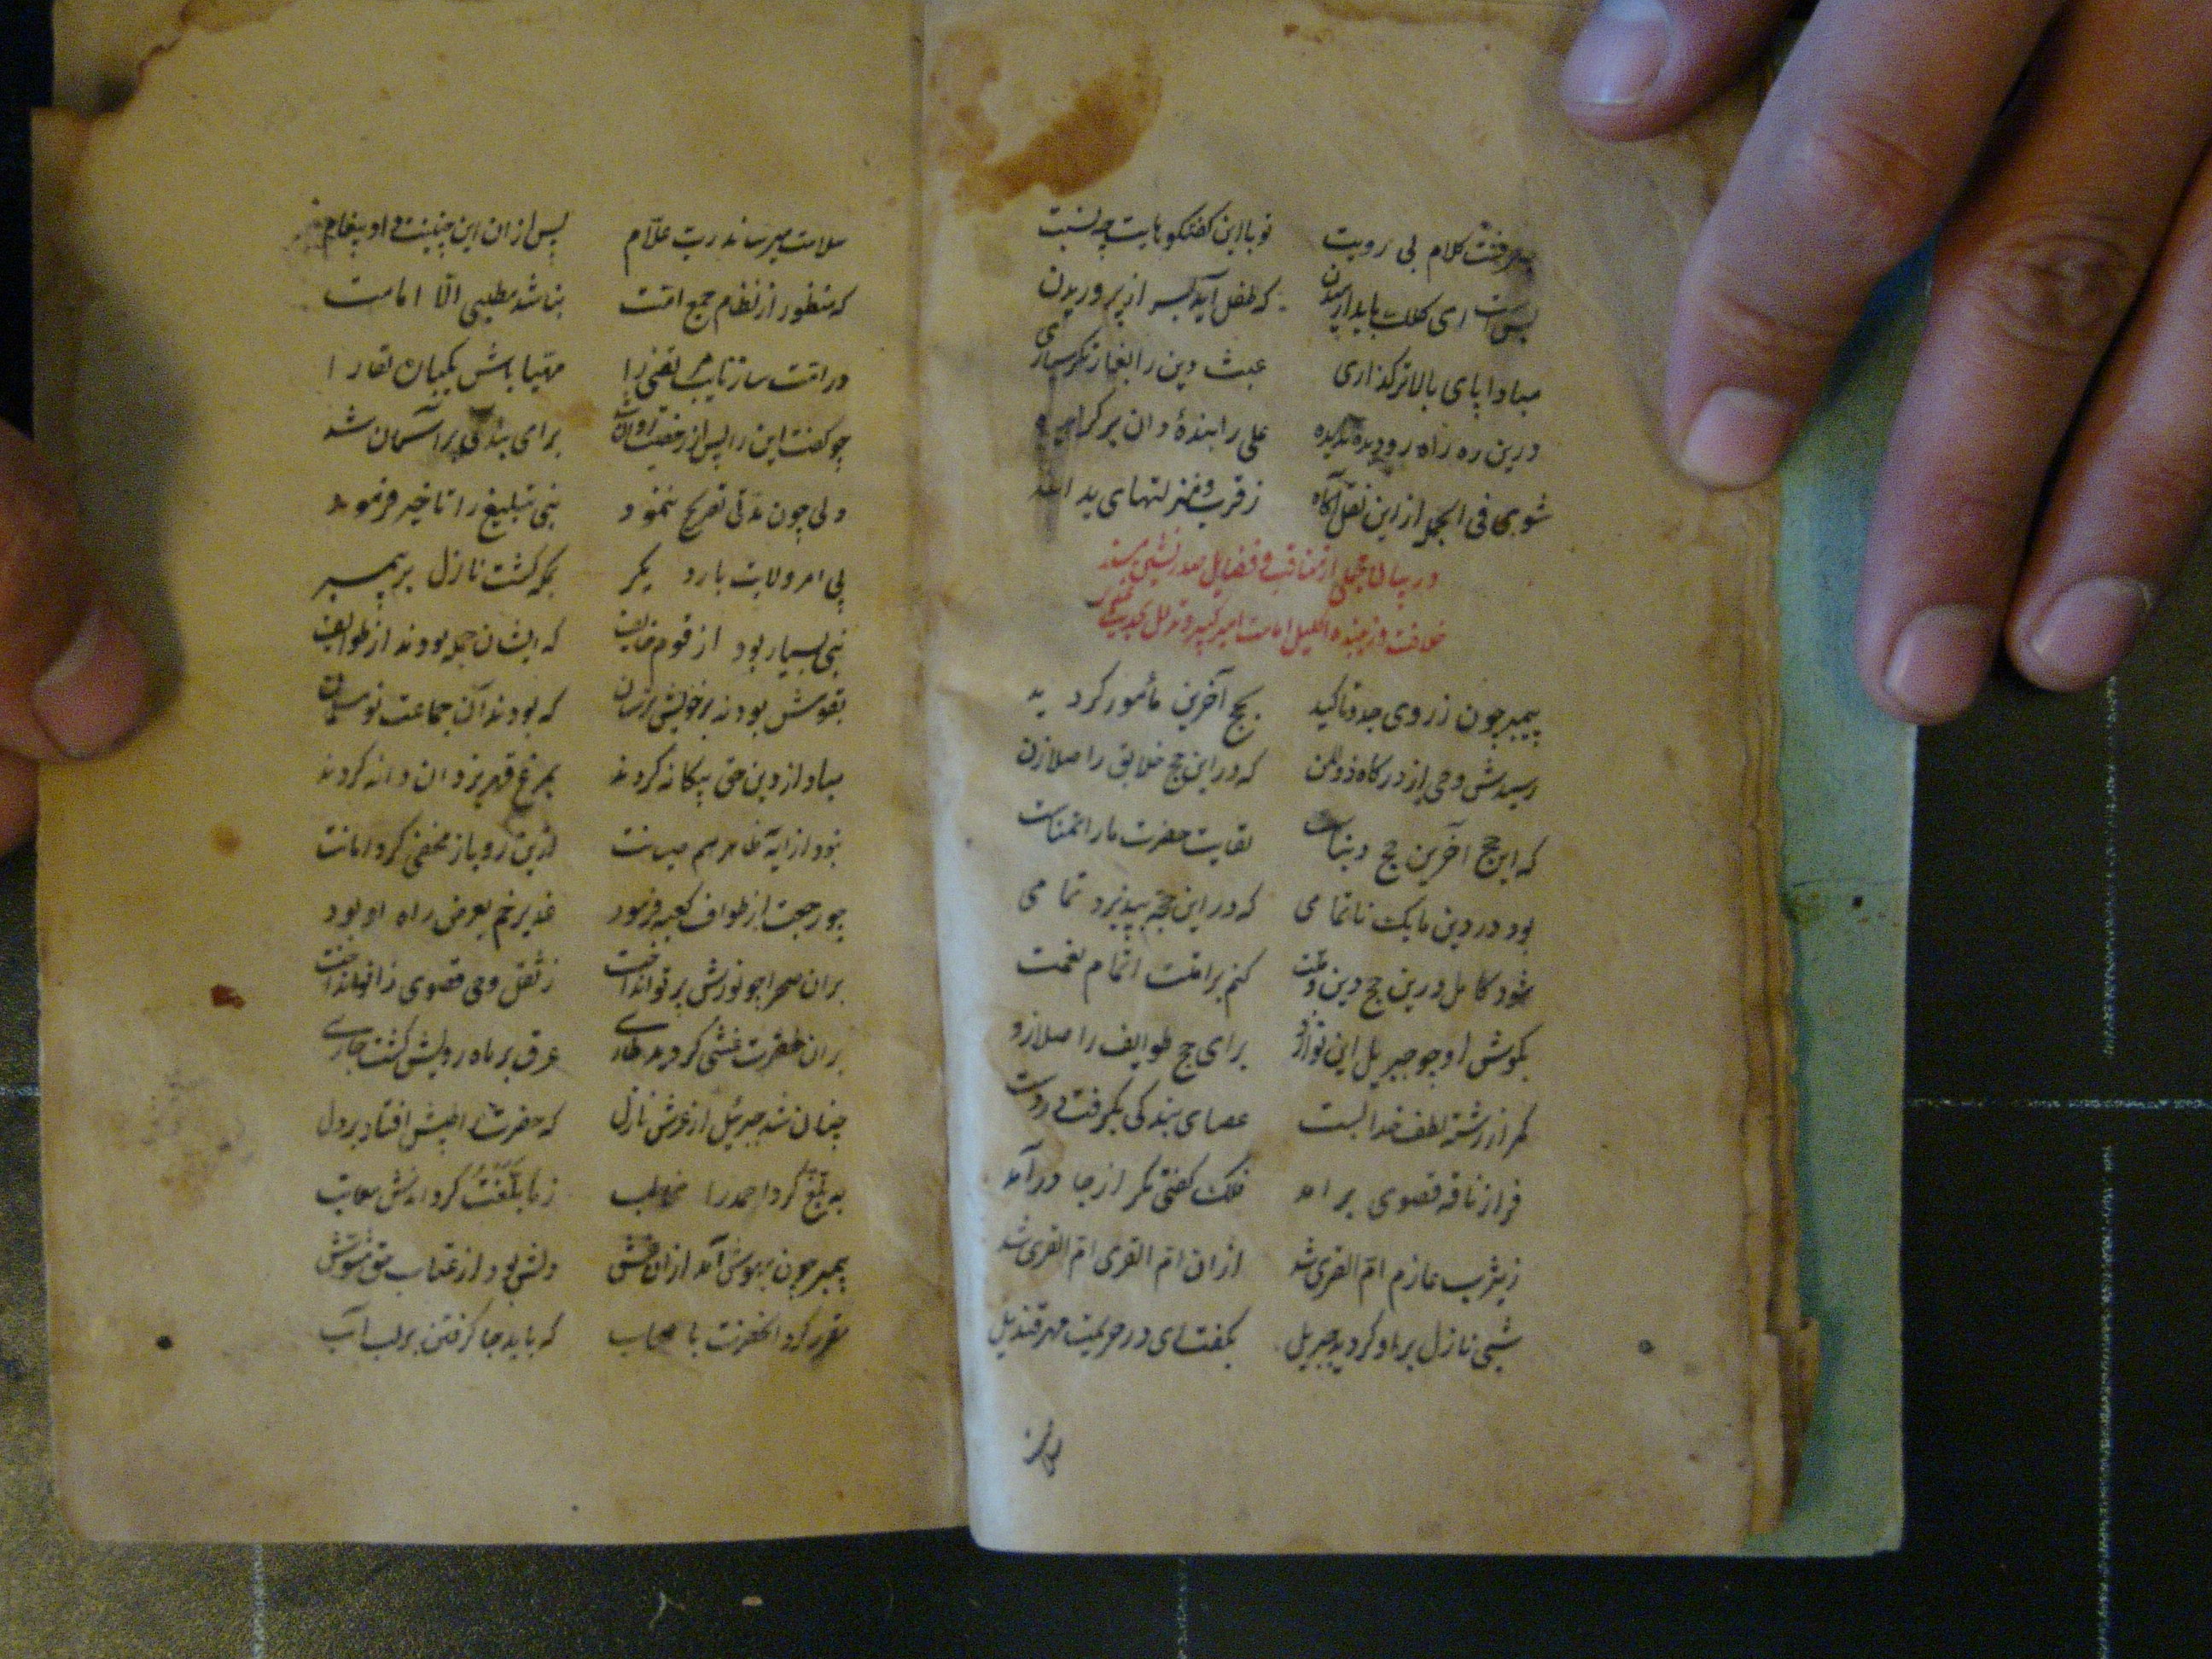 رفت کلام بی رویت تو با این گفتگوهایت چه نسبت
بس است ای کلک باید آرمیدن که طفل آید بسر از پروریدن
مبادا پای بالاتر گذاری عبث دین را بغاز تکر سپاری
درین ره راه رو دیده ندیده علی را بنده و ان پر
شوی فی الجمله از این نقل آگاه ز قرب و منزلتهای ید الله
در بیان مجملی از مناقب و فضایل صدرنشین مسند
خلافت و زیبنده اکلیل امامت امیر کبیر و
پیمبر چون ز روی جد و تاکید بحج آخرین مأمور گردید
رسیدش وحی از درگاه ذوالمن که در این حج خلایق را صلا زن
که این حج آخرین حج دنیاست لقایت حضرت ما را تمناست
بود در دین ما یک ناتمامی که در این حجه بپذیرد تمامی
شود کامل درین حج دین و ملت کنم بر امتت اتمام نعمت
بگوش او چو جبریل این نوا زد برای حج طوایف را صلا زد
کمر از رشته لطف خدا بست عصای بندگی بگرفت در دست
فراز ناقه قصوی بر امد فلک گفتی مگر از جا درآمد
ز یثرب عازم ام القری شد ازان ام القری ام القری شد
شبی نازل بر او گردید جبریل بگفت ای در حریمت مهر قندیل
سلامت میرساند رب علام پس از ان این چنینت داد پیغام
که منظور از نظام جمع امت نباشد مطلبی الا امامت
در امت ساز نایب مرتضی را مهیا باش یکبان لقا را
چو گفت این را پس از رخصت روان شد برای بندگی بر آسمان شد
ولی چون مدتی تصریح ننمود نبی تبلیغ را تاخیر فرمود
پی امر ولایت بار دیگر مگر گشت نازل بر پیمبر
نبی بسیار بود از قوم خایف که ایشان جمله بودند از طوایف
بقومش بود نه بر خویش ترسان که بودند آن جماعت نو مسلمان
مباد از دین حق بیگانه گردند بمرغ قهر یزدان دانه گردند
نبود از ایه ظاهر هم صیانت ازین رو باز مخفی کرد امانت
چو رجعت از طواف کعبه فرمود غدیر خم بعرض راه او بود
بران صحرا چو نورش پرتو انداخت ز ثقل وحی قصوی زانو انداخت
بران حضرت غشی گردید طاری عرق بر ماه رویش گشت جاری
چنان شد جبرئیل از عرش نازل که حضرت را طپش افتاد بر دل
به بلغ کرد احمد را مخاطب ز ما بلغت کرد اندش معاتب
پیمبر چون بهوش آمد ازان غش دلش بود از عتاب حق مشوش
مقرر کرد انحضرت با صحاب که باید جا گرفتن بر لب آب